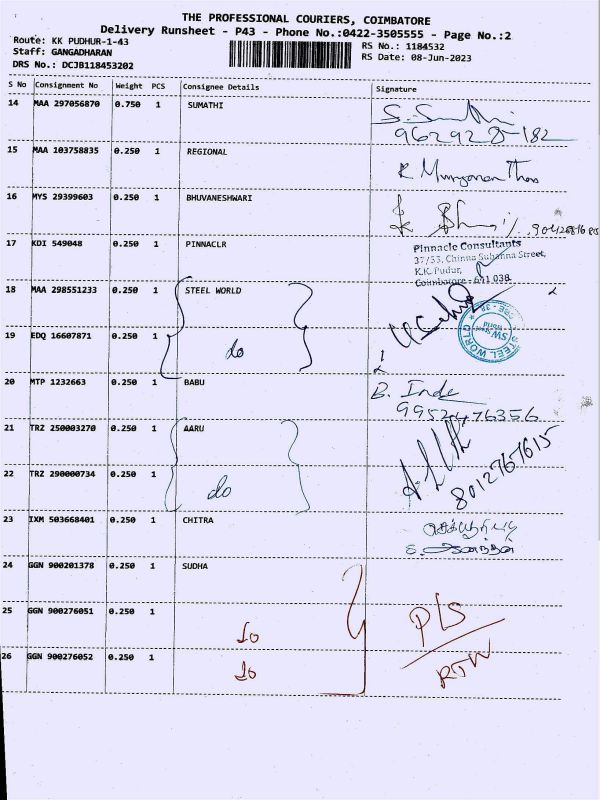 THE PROFESSIONAL COURIERS, COIMBATORE
Delivery Runsheet - P43 - Phone No.:0422-3505555 - Page No.:2
Route: KK PUDHUR-1-43 RS No.: 1184532
Staff: GANGADHARAN RS Date: 08-Jun-2023
DRS No.: DCJB118453202
S No Consignment No Weight PCS Consignee Details Signature
14 MAA 297056870 0.750 1 SUMATHI
962928-182
15 MAA 103758835 0.250 1 REGIONAL
16 MYS 29399603 0.250 1 BHUVANESHWARI
17 KDI 549048 0.250 1 PINNACLR
Pinnacle Consultants
37/53, Chinna Subanna Street,
K.K. Pudur,
Coimbatore - 641 038
18 MAA 298551233 0.250 1 STEEL WORLD
STEEL WORLD
19 EDQ 16607871 0.250 1 do
20 MTP 1232663 0.250 1 BABU
9952476356
21 TRZ 250003270 0.250 1 AARU
8012767615
22 TRZ 290000734 0.250 1 do
23 IXM 503668401 0.250 1 CHITRA
24 GGN 900201378 0.250 1 SUDHA
25 GGN 900276051 0.250 1
P/S
26 GGN 900276052 0.250 1